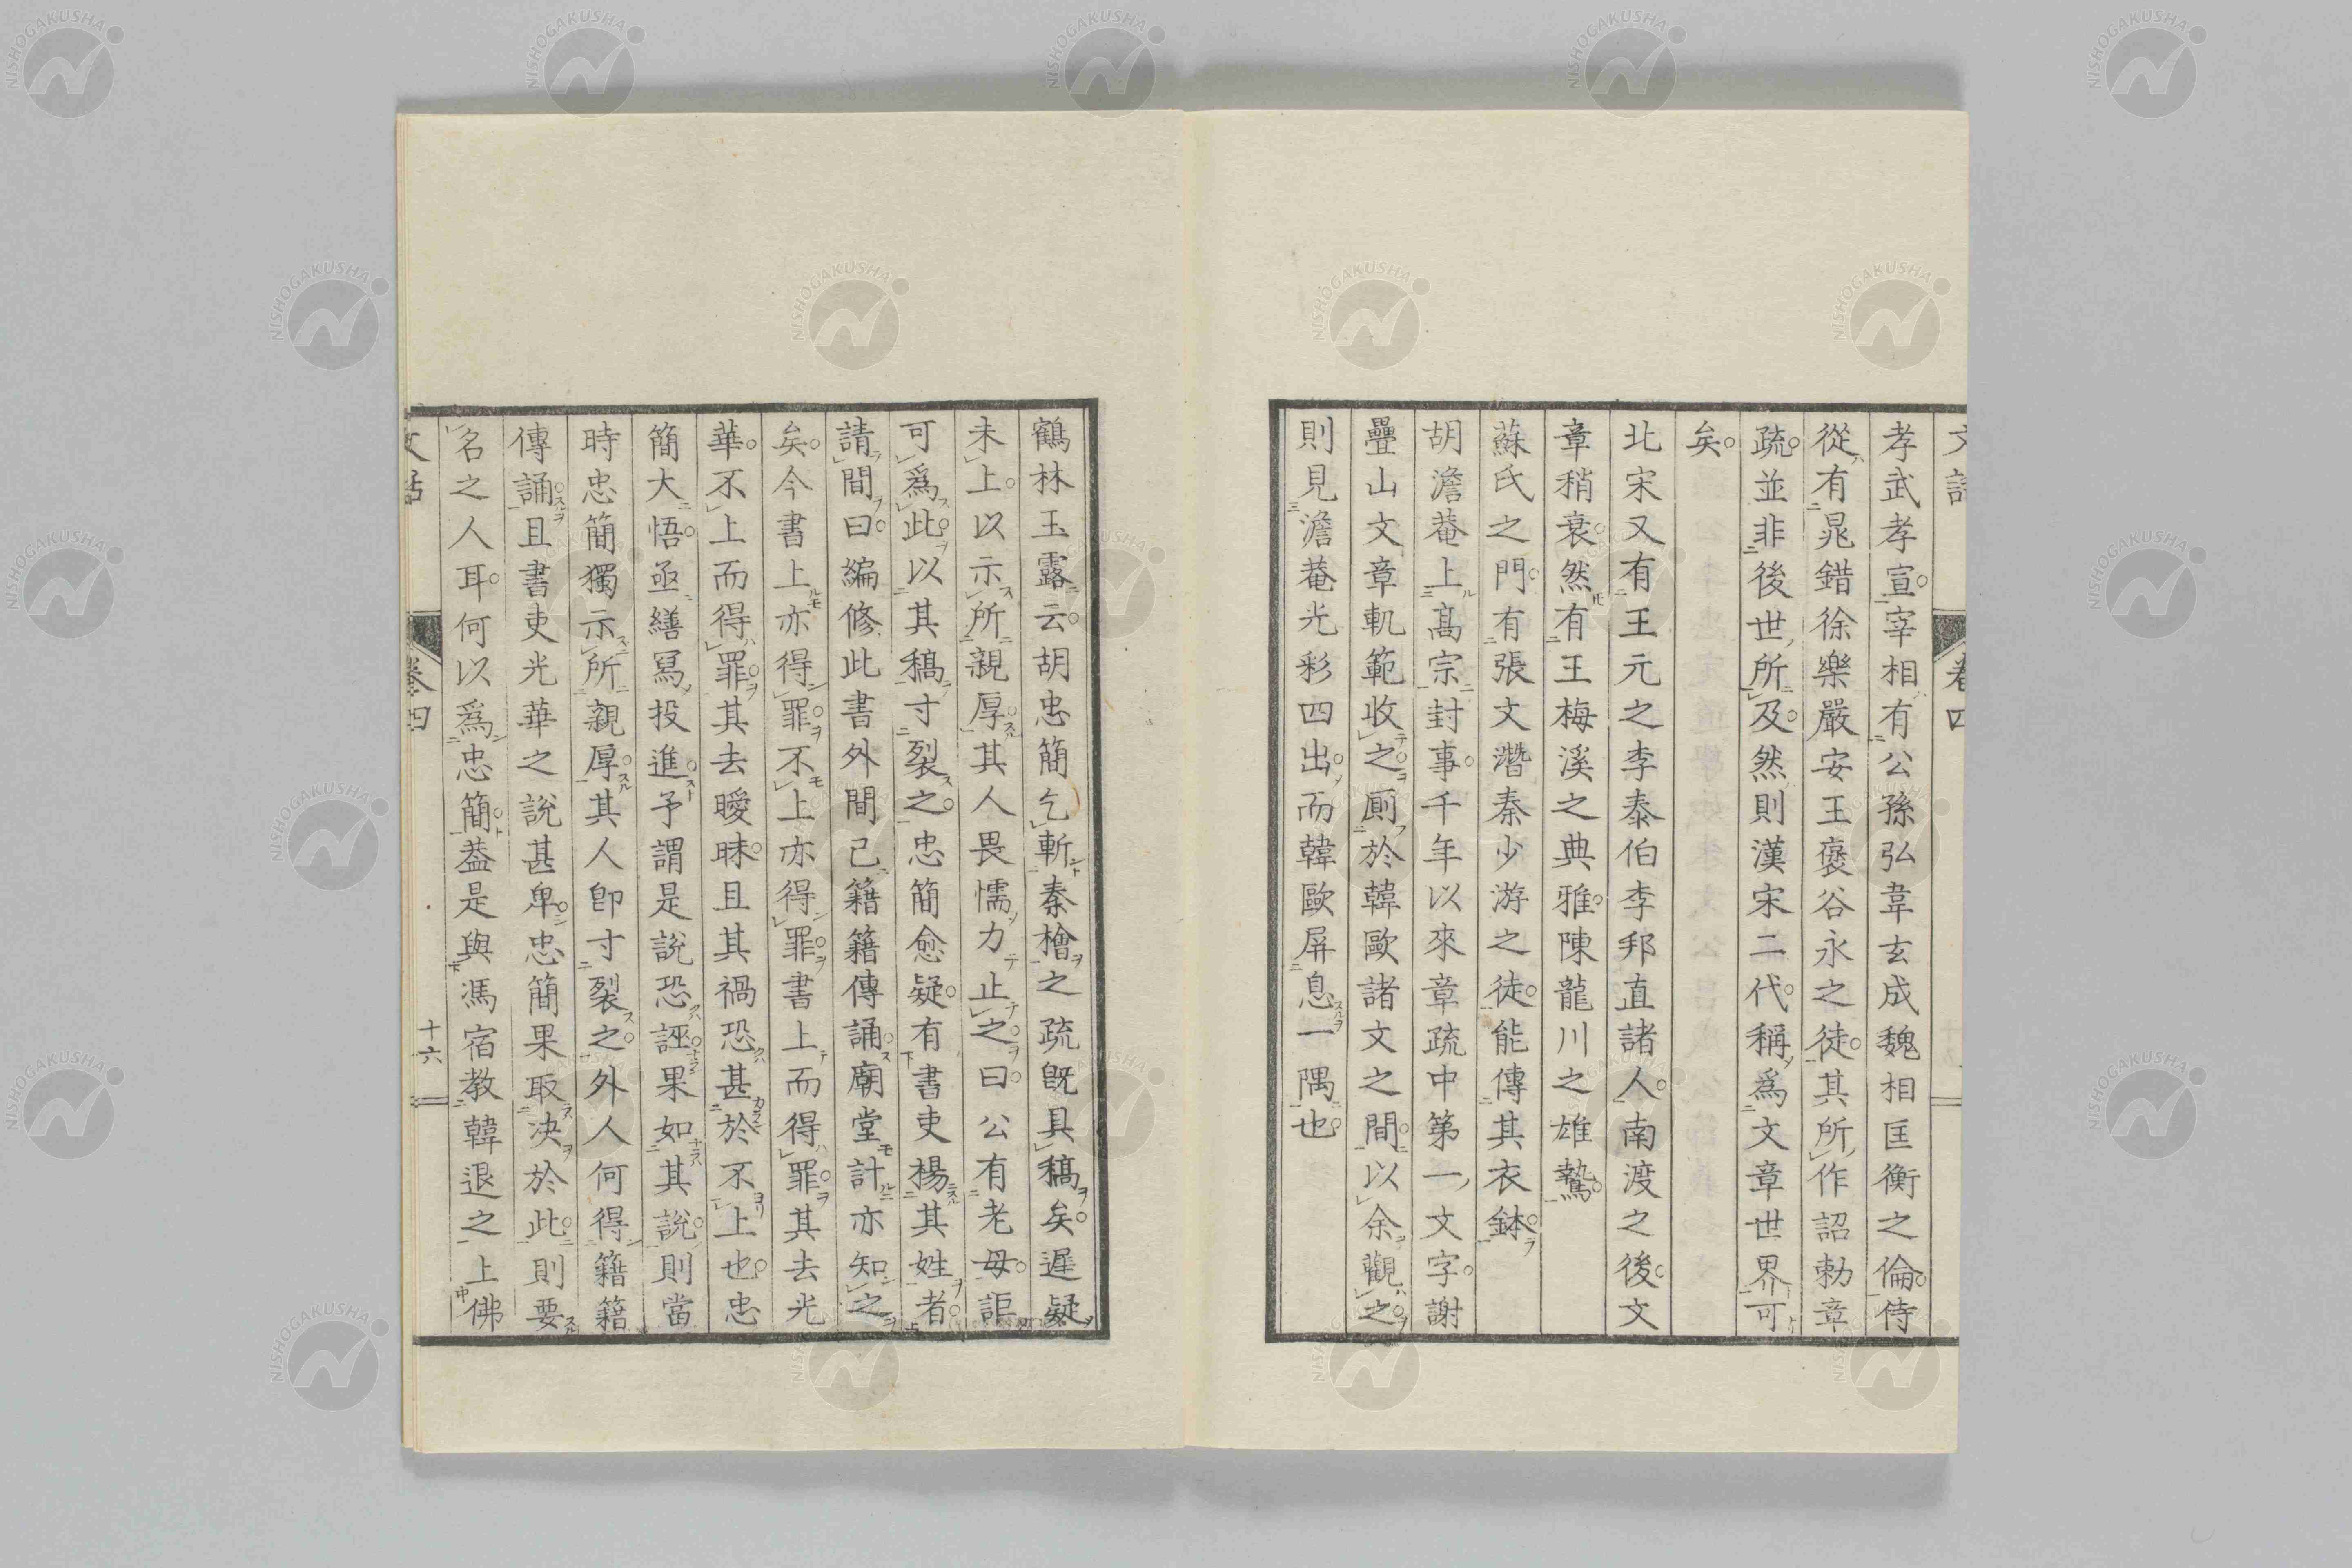 孝武孝宣。宰相有公孫弘韋玄成魏相匡衡之倫。侍
從有晁錯徐樂嚴安王褒谷永之徒。其所作詔勅章
疏。並非後世所及。然則漢宋二代。稱爲文章世界可
矣。
北宋又有王元之李泰伯李邦直諸人。南渡之後。文
章稍衰。然有王梅溪之典雅。陳龍川之雄騺。
蘇氏之門。有張文潛秦少游之徒。能傳其衣鉢。
胡澹菴上高宗封事。千年以來章疏中第一文字。謝
疊山文章軌範收之。厠於韓歐諸文之間。以余觀之。
則見澹菴光彩四出。而韓歐屏息一隅也。
卷四
鶴林玉露云。胡忠簡乞斬秦檜之疏既具稿矣。遲疑
未上。以示所親厚。其人畏懦力止之。曰。公有老母。詎
可爲此。以其稿寸裂之。忠簡愈疑。有書吏楊其姓者。
請間曰。編修此書外間已籍籍傳誦。廟堂計亦知之
矣。今書上亦得罪。不上亦得罪。書上而得罪。其去光
華。不上而得罪。其去曖昧。且其禍恐甚於不上也。忠
簡大悟。亟繕寫投進。予謂是說恐誣。果如其說。則當
時忠簡獨示所親厚。其人卽寸裂之。外人何得籍籍
傳誦。且書吏光華之說甚卑。忠簡果取決於此。則要
名之人耳。何以爲忠簡。葢是與馮宿教韓退之上佛
卷四
十六
NISHOGAKUSHA